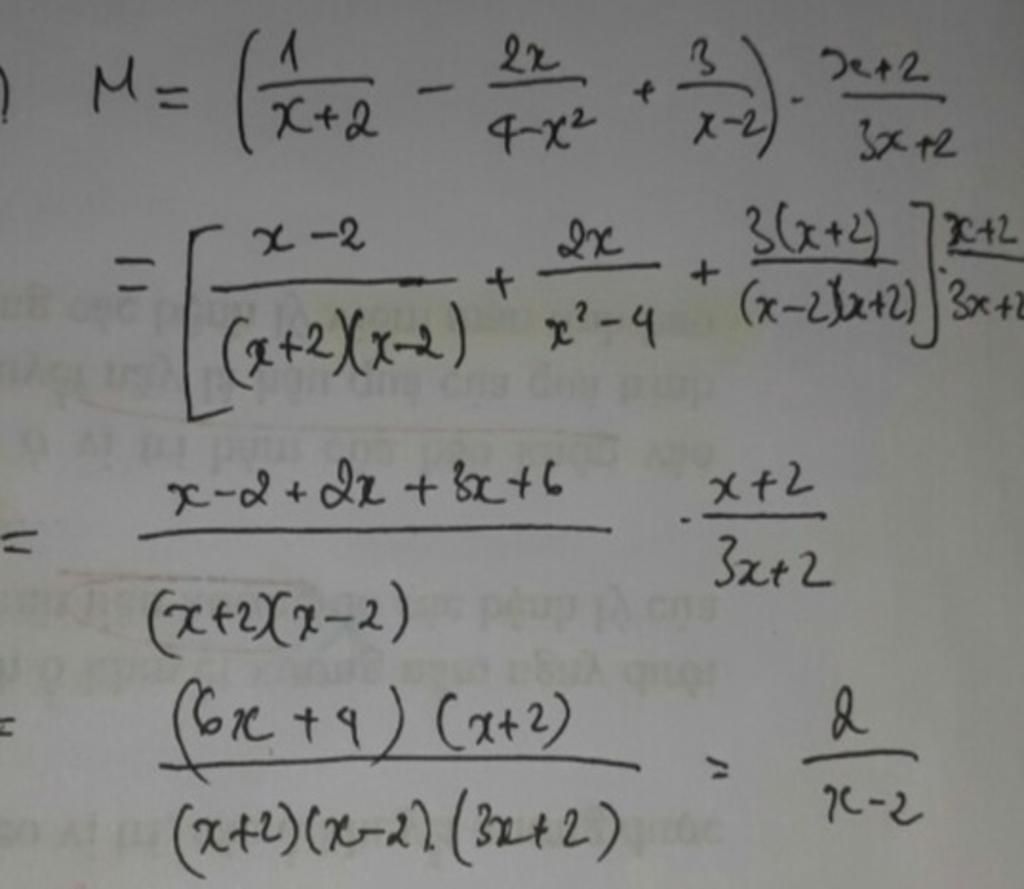 ) M = (1/(x+2) - 2x/(4-x²) + 3/(x-2)) . (x+2)/(3x+2)
= [(x-2)/((x+2)(x-2)) + 2x/(x²-4) + 3(x+2)/((x-2)(x+2))] . (x+2)/(3x+2)
= (x-2+2x+3x+6)/((x+2)(x-2)) . (x+2)/(3x+2)
= (6x+4)(x+2)/((x+2)(x-2).(3x+2)) = 2/(x-2)